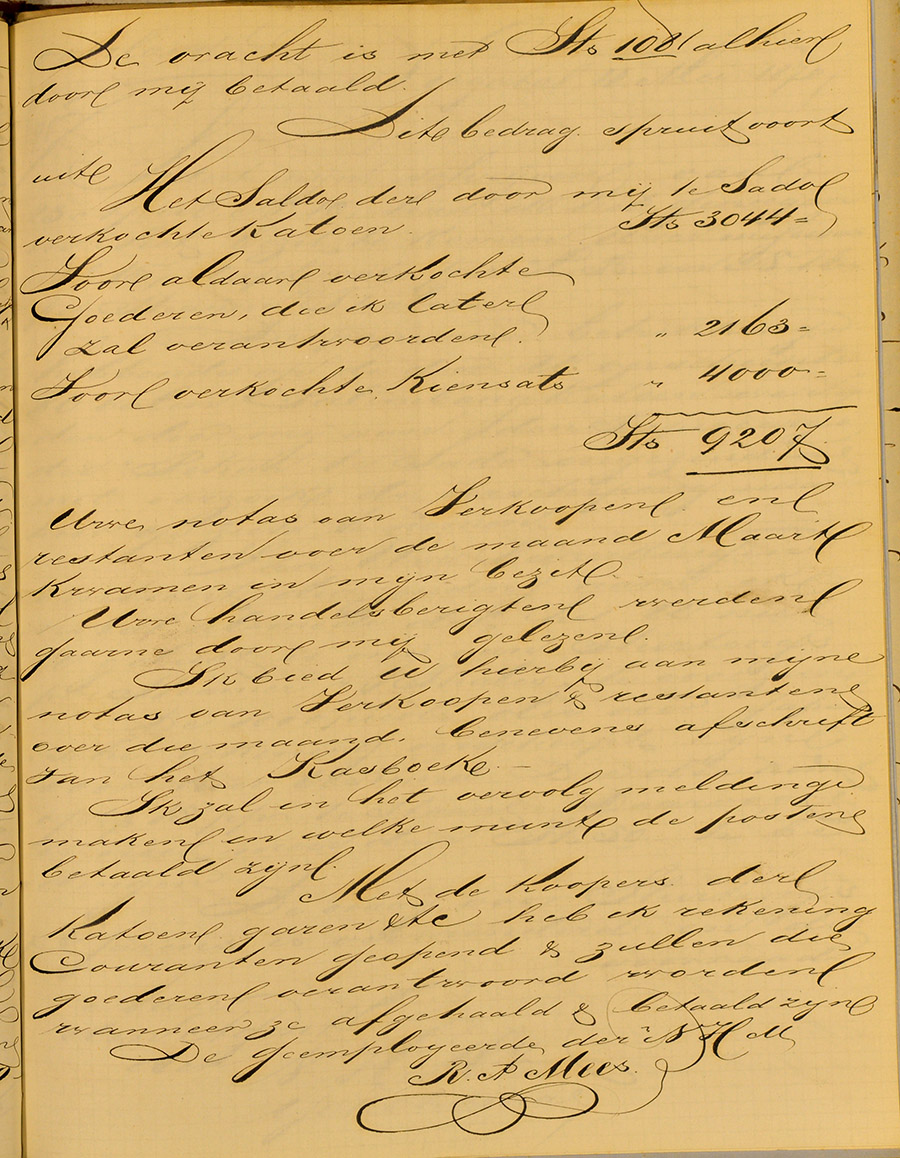 De vracht is met Sts 108 alhier
door mij betaald.
Dit bedrag spruit voort
uit
Het Saldo der door mij te Sado
verkochte Katoen. Sts 3044=
Voor aldaar verkochte
Goederen, die ik later
zal verantwoorden. " 2163=
Voor verkochte Kiensats " 4000=
Sts 9207
Uwe notas van Verkoopen en
restanten over de maand Maart
kwamen in mijn bezit.
Uwe handelsberigten werden
gaarne door mij gelezen.
Ik bied U hierbij aan mijne
notas van Verkoopen & restanten
over die maand. benevens afschrift
van het Kasboek.
Ik zal in het vervolg melding
maken in welke munt de posten
betaald zijn.
Met de Koopers der
Katoen garen &tc heb ik rekening
Couranten geopend & zullen die
goederen verantwoord worden
wanneer ze afgehaald & betaald zijn
De Geemployeerde der N H M
R. A Mees.